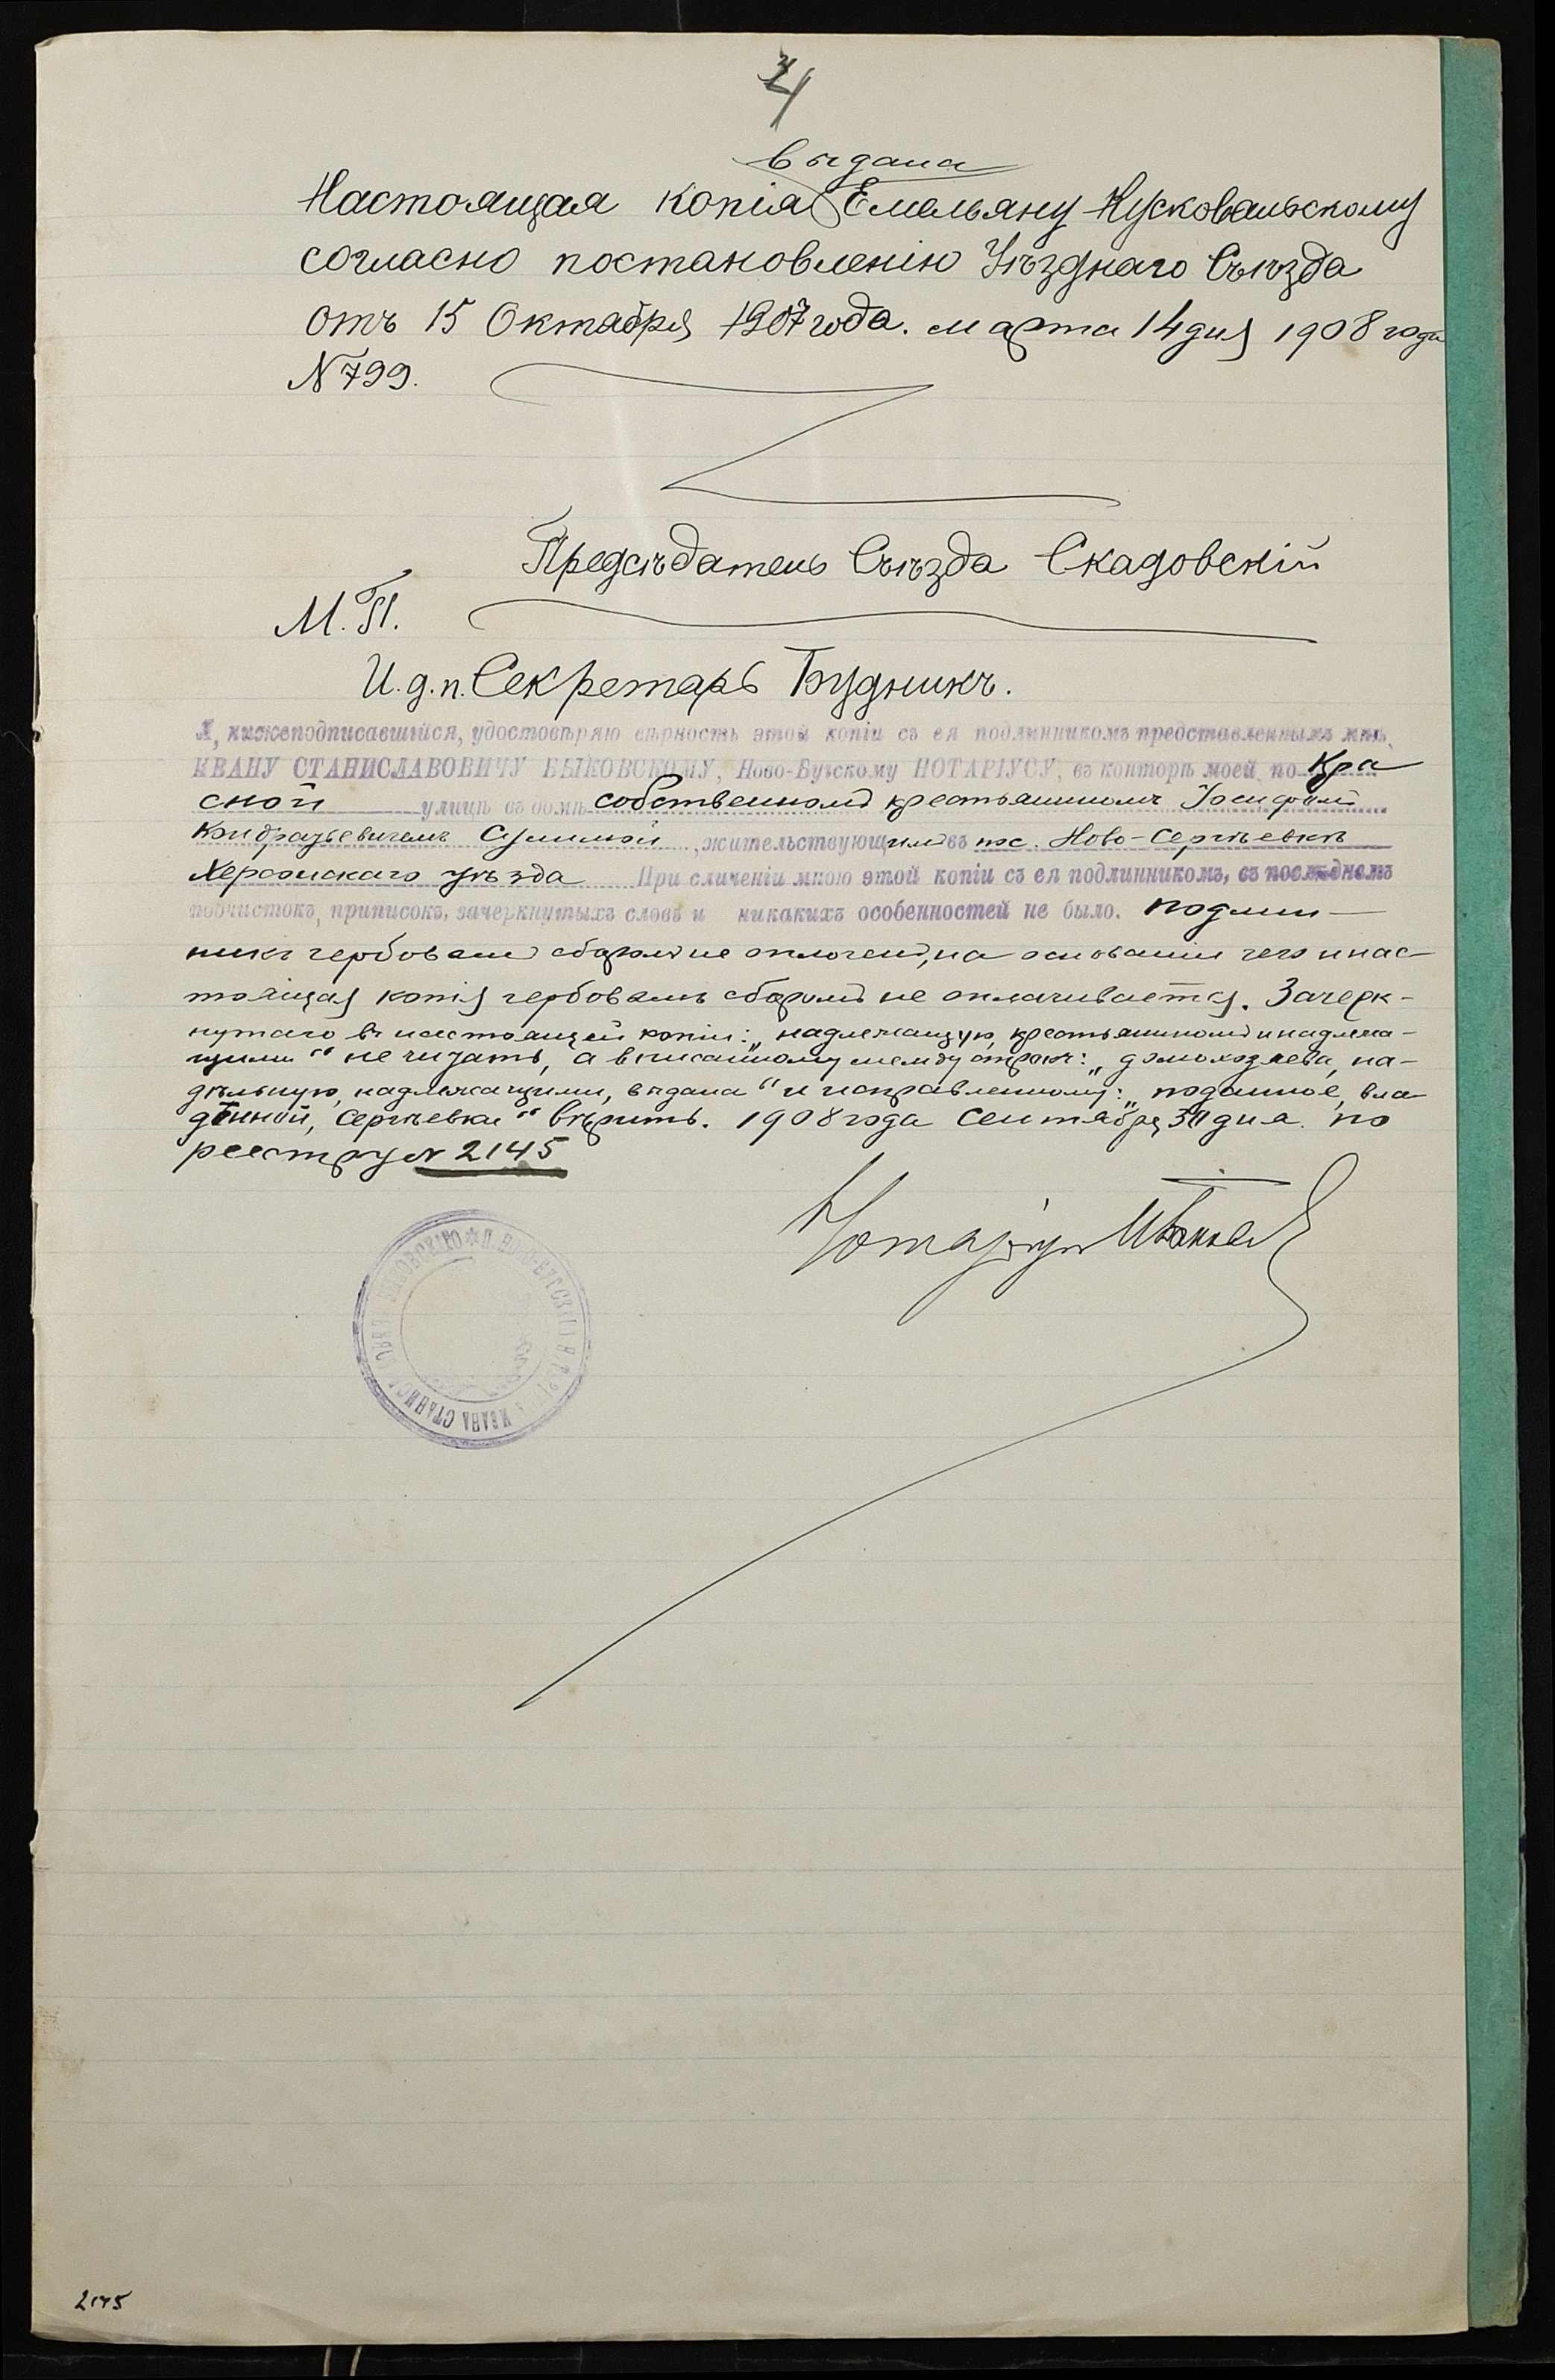 выдана
Настоящая копія Емельяну Кусковальскому
согласно постановленію Уѣзднаго Съѣзда
отъ 15 Октября 1907 года. марта 14 дня 1908 года
№ 799.
Предсѣдатель Съѣзда Скадовскій
М.П.
И.д.п. Секретарь Будникъ.
Я, нижеподписавшійся, удостовѣряю вѣрность этой копіи съ ея подлинникомъ представленнымъ мнѣ,
ИВАНУ СТАНИСЛАВОВИЧУ БЫКОВСКОМУ, Ново-Бугскому НОТАРІУСУ, въ конторѣ моей, по Кра
сной улицѣ въ домѣ собственномъ крестьяниномъ Іосифомъ
Кондратьевичемъ Сулимой, жительствующимъ въ пос. Ново-Сергѣевкѣ
Херсонскаго уѣзда При сличеніи мною этой копіи съ ея подлинникомъ, въ послѣднемъ
подчистокъ, приписокъ, зачеркнутыхъ словъ и никакихъ особенностей не было. Подлин-
никъ гербовымъ сборомъ не оплоченъ, на основаніи чего и нас-
тоящая копія гербовымъ сборомъ не оплачивается. Зачерк-
нутаго въ настоящей копіи: „надлежащую, крестьяниномъ и надлежа-
щими" не читать, а вписанному между строкъ: „домохозяева, на-
дѣльную, надлежащими, выдана" и исправленному: „поданное, вла-
дѣнной, Сергѣевка" вѣрить. 1908 года Сентября 30 дня. по
реестру № 2145
Нотаріусъ
2145